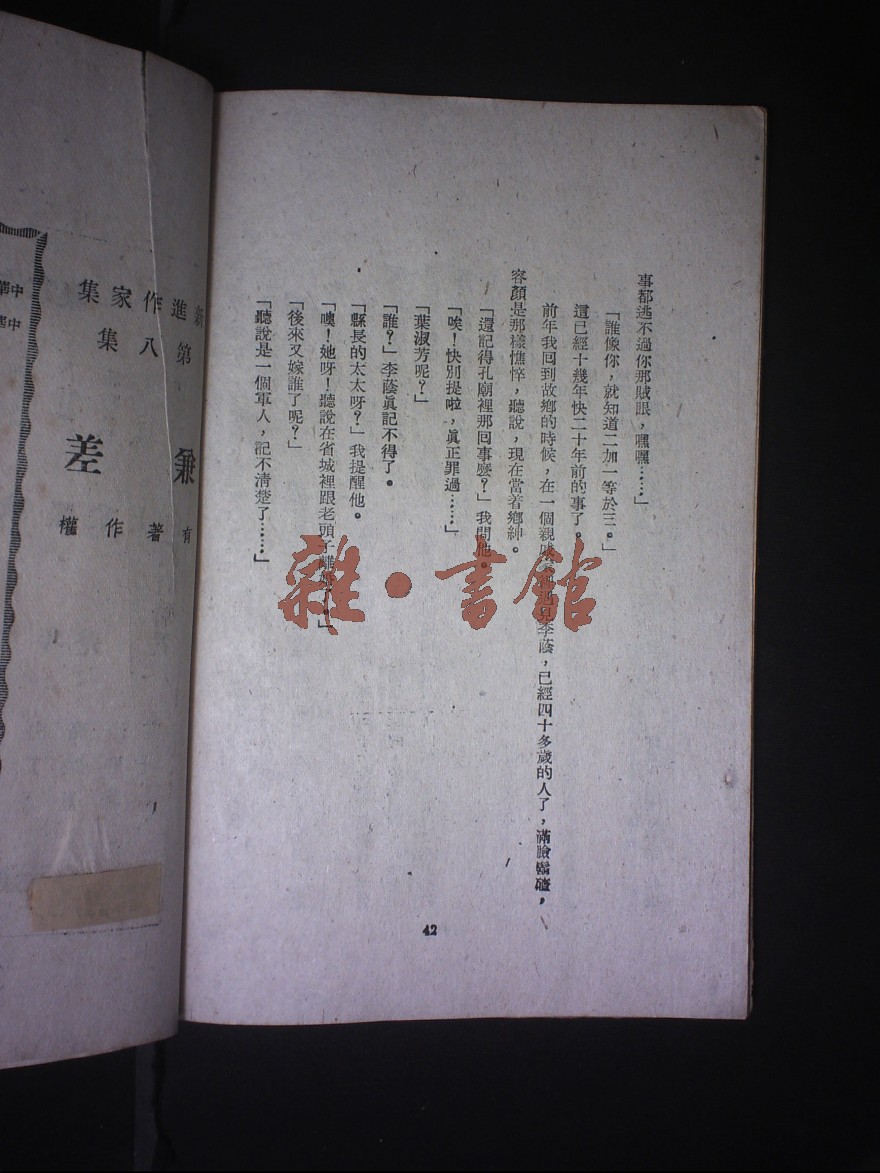 事都逃不過你那賊眼，嘿嘿……」
「誰像你，就知道二加一等於三。」
這已經十幾年快二十年前的事了。
前年我回到故鄉的時候，在一個親戚 見李蔭，已經四十多歲的人了，滿臉鬍碴，
容顏是那樣憔悴，聽說，現在當着鄉紳。
「還記得孔廟裡那回事麼？」我問他。
「唉！快別提啦，眞正罪過……」
「葉淑芳呢？」
「誰？」李蔭眞記不得了。
「縣長的太太呀？」我提醒他。
「噢！她呀！聽說在省城裡跟老頭子離 。」
「後來又嫁誰了呢？」
「聽說是一個軍人，記不清楚了……」
42
雜・書館
新進作家集
第八集
兼差
有著作權
中華
中